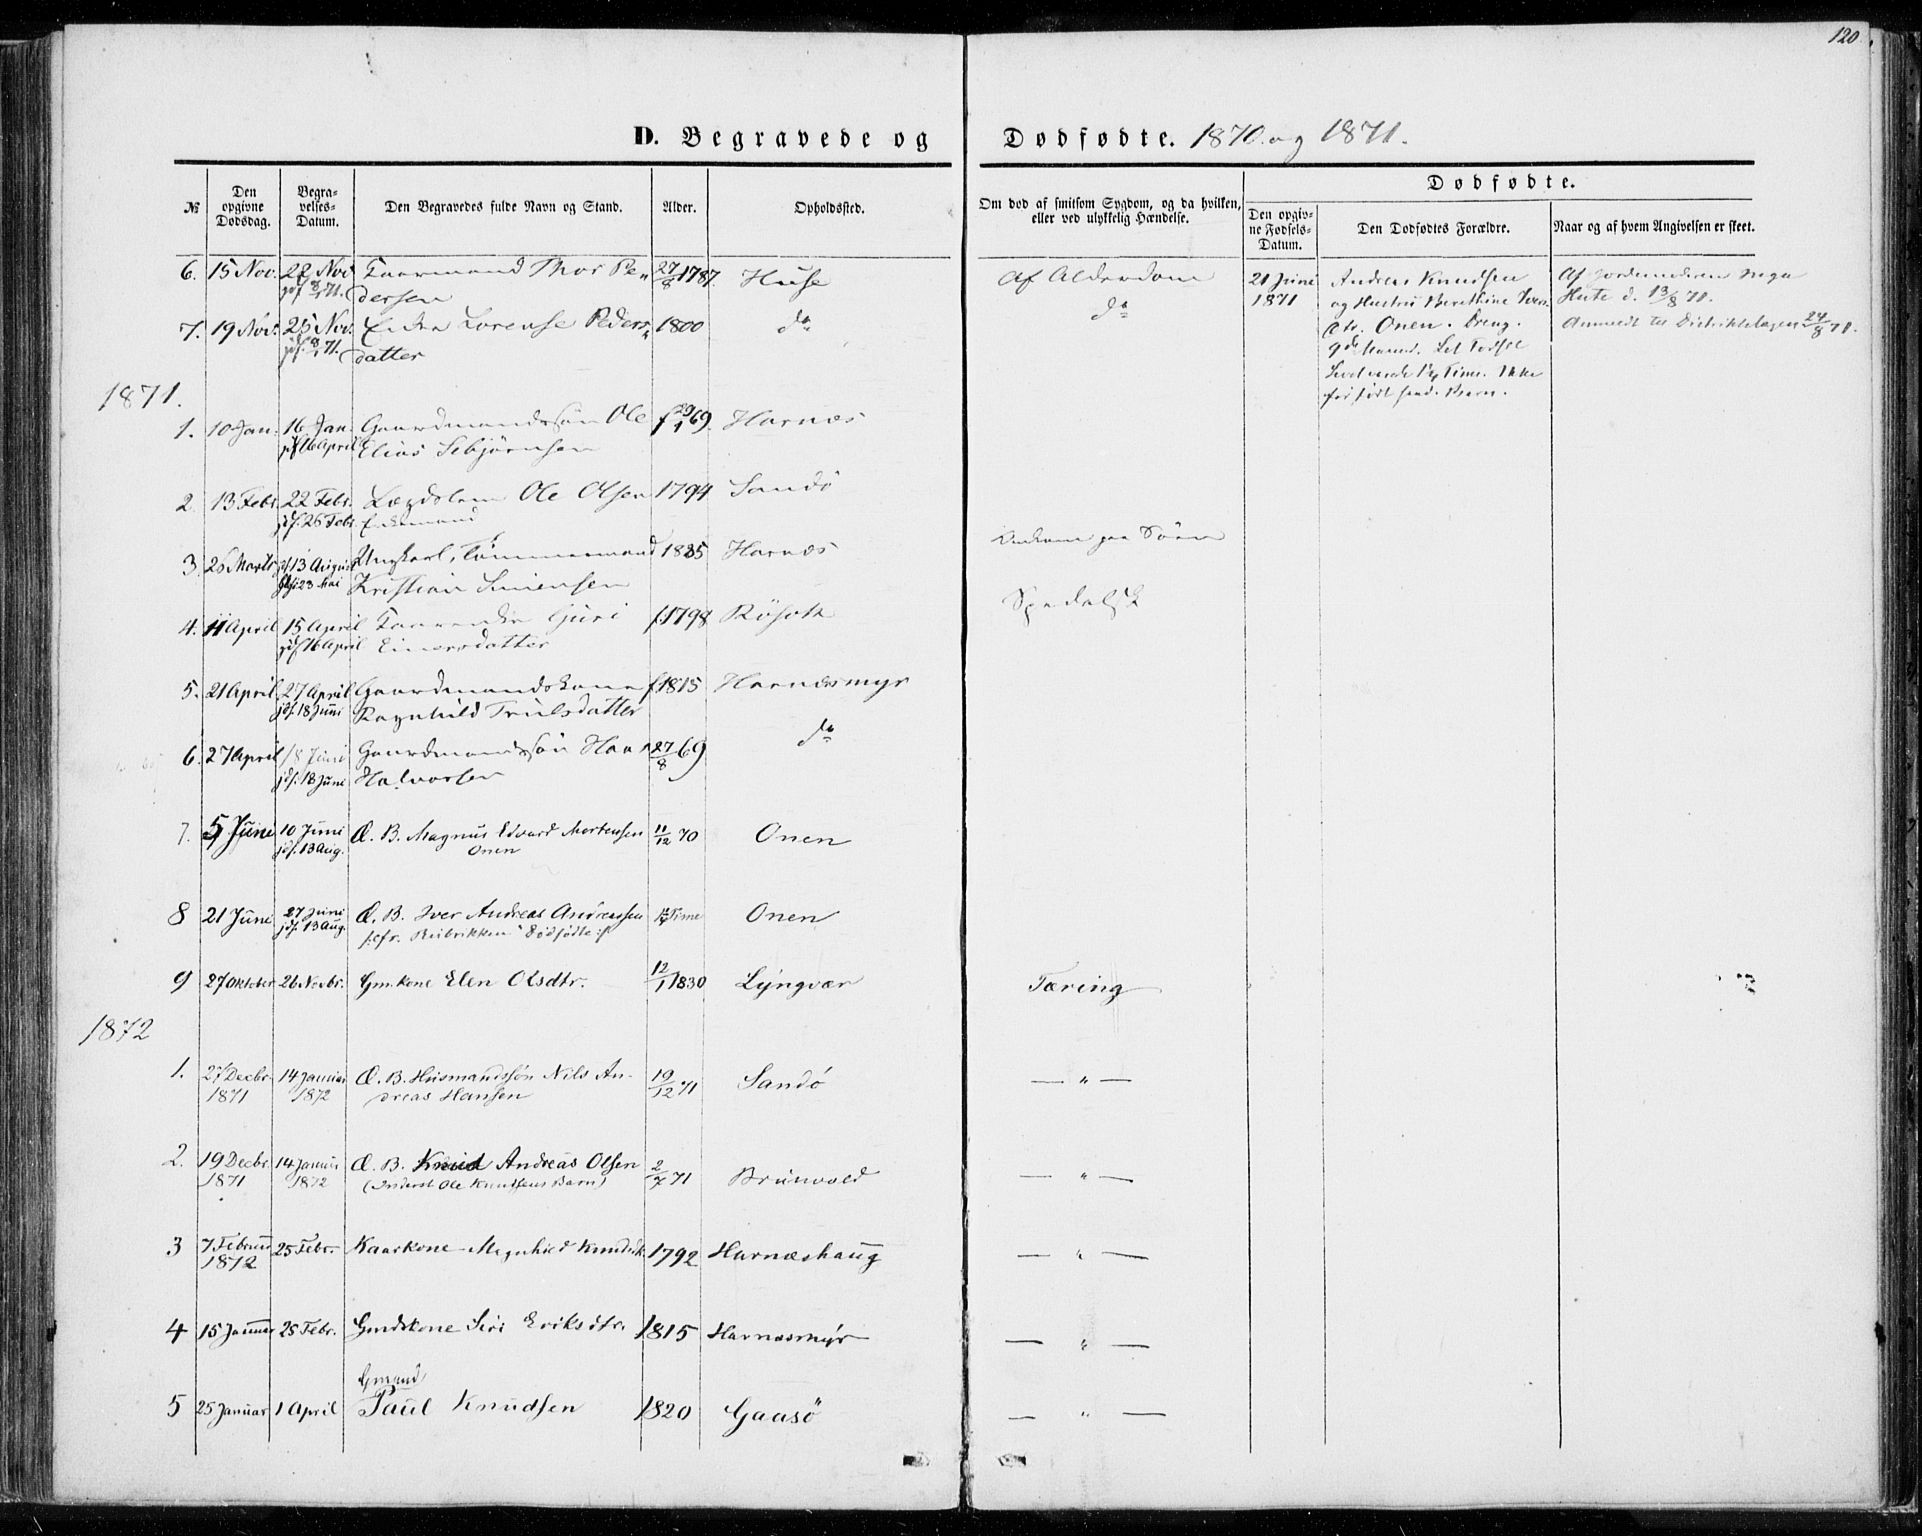 120
D. Begravede og Dødfødte. 1870 og 1871.
№
Den opgivne Dødsdag.
Begravelses-Datum.
Den Begravedes fulde Navn og Stand.
Alder.
Opholdssted.
Om død af smitsom Sygdom, og da hvilken, eller ved ulykkelig Hændelse.
Dødfødte.
Den opgivne Fødsels-Datum.
Den Dødfødtes Forældre.
Naar og af hvem Angivelsen er skeet.
6. 15 Nov. 22 Nov Kaarmand Thor Pe- 27/8 1787. Huse Af Alderdom
jdf. 8/1 71. dersen
7. 19 Nov. 25 Nov. Enke Lorense Peders- 1800 do do
jdf. 8/1 71. datter
21 Juni Andreas Knudsen
1871 og Hustru Berethine Ivers
dtr. Onen. Dreng.
Levede Time. Ikke
før født Barn.
Af Jordemoderen
Hute d. 13/8 71.
Anmeldt til Distriktslægen 24/8 71.
1871.
1. 10 Jan. 16 Jan. Gaardmandssøn Ole f 29/1 69. Harnæs
jdf 16 April Elias Sebjørnsen
2. 13 Febr. 22 Febr. Lægdslem Ole Olsen 1794 Sandø
jdf. 26 Febr. Enkemand
3. 26 Marts jdf 13 August Ungkarl, Tømmermand 1835 Harnæs Omkom paa Søen
23 Mai Kristian Simensen
4. 11 April 15 April Kaarenke Guri f. 1798 Røsok Spedalsk
jdf 16 April Einersdatter
5. 21 April 27 April Gaardmandskone f 1815 Harnæsmyr
jdf. 18 Juni Ragnhild Trulsdatter
6. 27 April 18 Juni Gaardmandssøn Hans 27/8 69 do
jdf. 18 Juni Halvorsen
7. 5 Juni 10 Juni Æ. B. Magnus Edvard Mortensen 11/12 70 Onen
jdf. 13 Aug. Onen
8 21 Juni 27 Juni Æ. B. Iver Andreas Andreassen Time Onen
jdf. 13 Aug. /:cfr. Rubrikken "Dødfødte:/
9 27 Oktober 26 Novbr. Gm.kone Elen Olsdtr. 12/1 1830 Lyngvær Tæring
1872
1. 27 Decbr. 14 Januar Æ. B. Husmandssøn Nils An- 19/12 71 Sandø — " —
1871 1872 dreas Hansen
2. 19 Decbr. 14 Januar Æ. B. Knud Andreas Olsen 2/7 71 Brunvold — " —
1871 1872 (Inderst Ole Knudsens Barn)
3 7 Februar 25 Febr. Kaarkone Magnhild Knudsdtr 1792 Harnæshaug — " —
1872
4 15 Januar 25 Febr. Gmdskone Siri Eriksdtr. 1815 Harnæsmyr — " —
Gmand
5 25 Januar 1 April Paul Knudsen 1820 Gaasø — " —